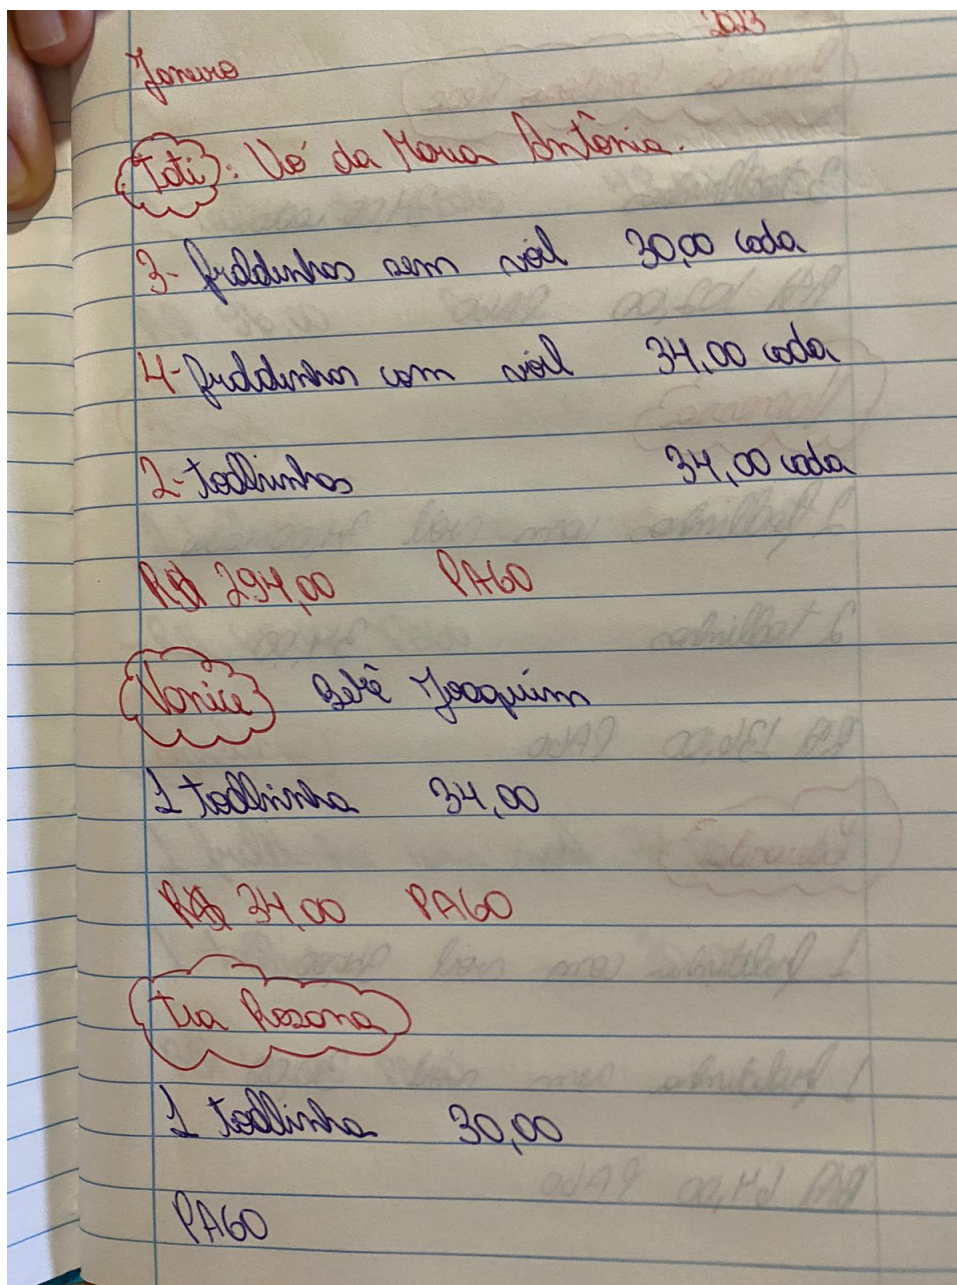 2023
Janeiro
Tati: Vó da Maria Antônia.
3- fraldinhas sem viél 30,00 cada
4- fraldinhas com viél 34,00 cada
2- toallinhas 34,00 cada
R$ 294,00 PAGO
Vanice Bebê Joaquim
1 toallinha 34,00
R$ 34,00 PAGO
tia Rosana
1 toallinha 30,00
PAGO